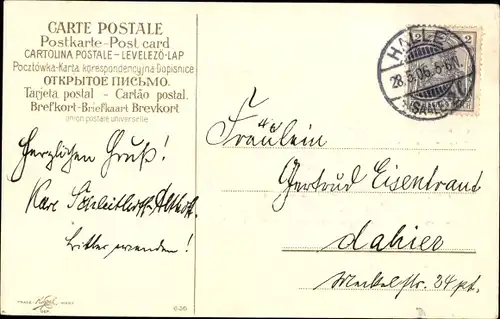 CARTE POSTALE
Postkarte-Post card
CARTOLINA POSTALE-LEVELEZÖ-LAP
Pocztówka-Karta korespondencyjna-Dopisnice
ОТКРЫТОЕ ПИСЬМО.
Tarjeta postal - Cartão postal.
Brefkort-Briefkaart Brevkort
Union postale universelle
HALLE
28.5.06.5-6N
(SAALE)
2
2
Herzlichen Gruß!
Karl
bitte wenden!
Fräulein
Gertrud Eisentraut
dahier
34 pt.
TRADE
MART
636